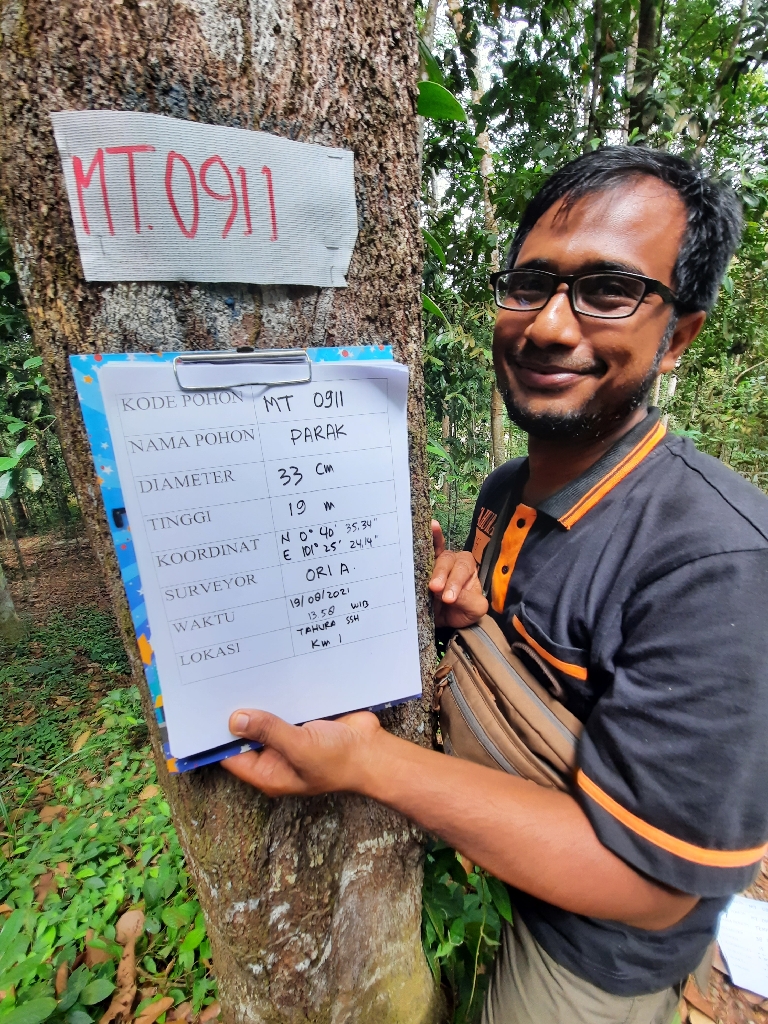 MT.0911
KODE POHON MT 0911
NAMA POHON PARAK
DIAMETER 33 Cm
TINGGI 19 m
KOORDINAT N 0° 40' 35,34"
E 101° 25' 24,14"
SURVEYOR ORI A.
WAKTU 19/08/2021
13.58 WIB
LOKASI TAHURA SSH
Km 1